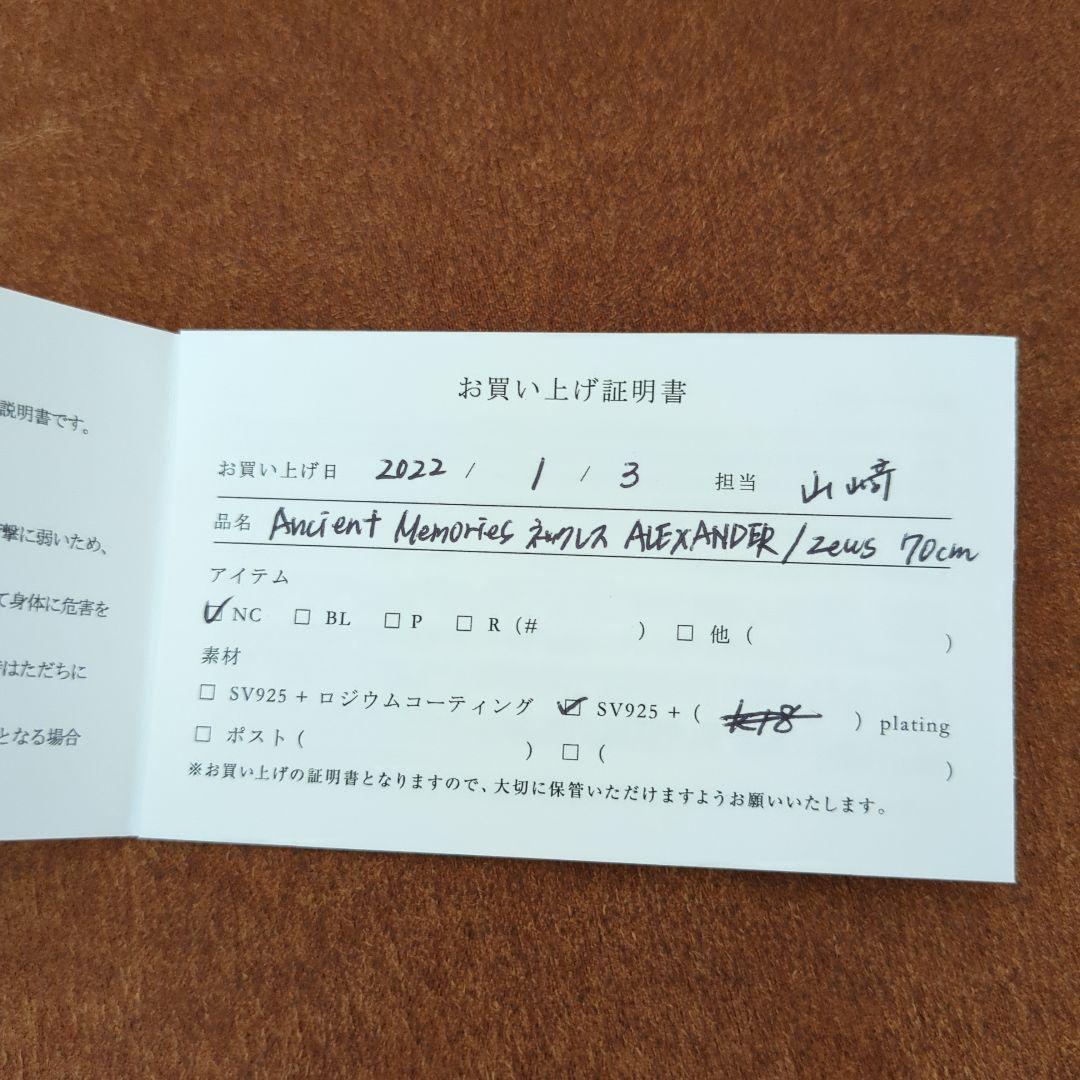 説明書です。
撃に弱いため、
て身体に危害を
はただちに
となる場合
お買い上げ証明書
お買い上げ日 2022 / 1 / 3 担当 山﨑
品名 Ancient Memories ネックレス ALEXANDER/zeus 70cm
アイテム
☑ NC □ BL □ P □ R (# ) □ 他 ( )
素材
□ SV925 + ロジウムコーティング ☑ SV925 + ( k18 ) plating
□ ポスト ( ) □ ( )
※お買い上げの証明書となりますので、大切に保管いただけますようお願いいたします。